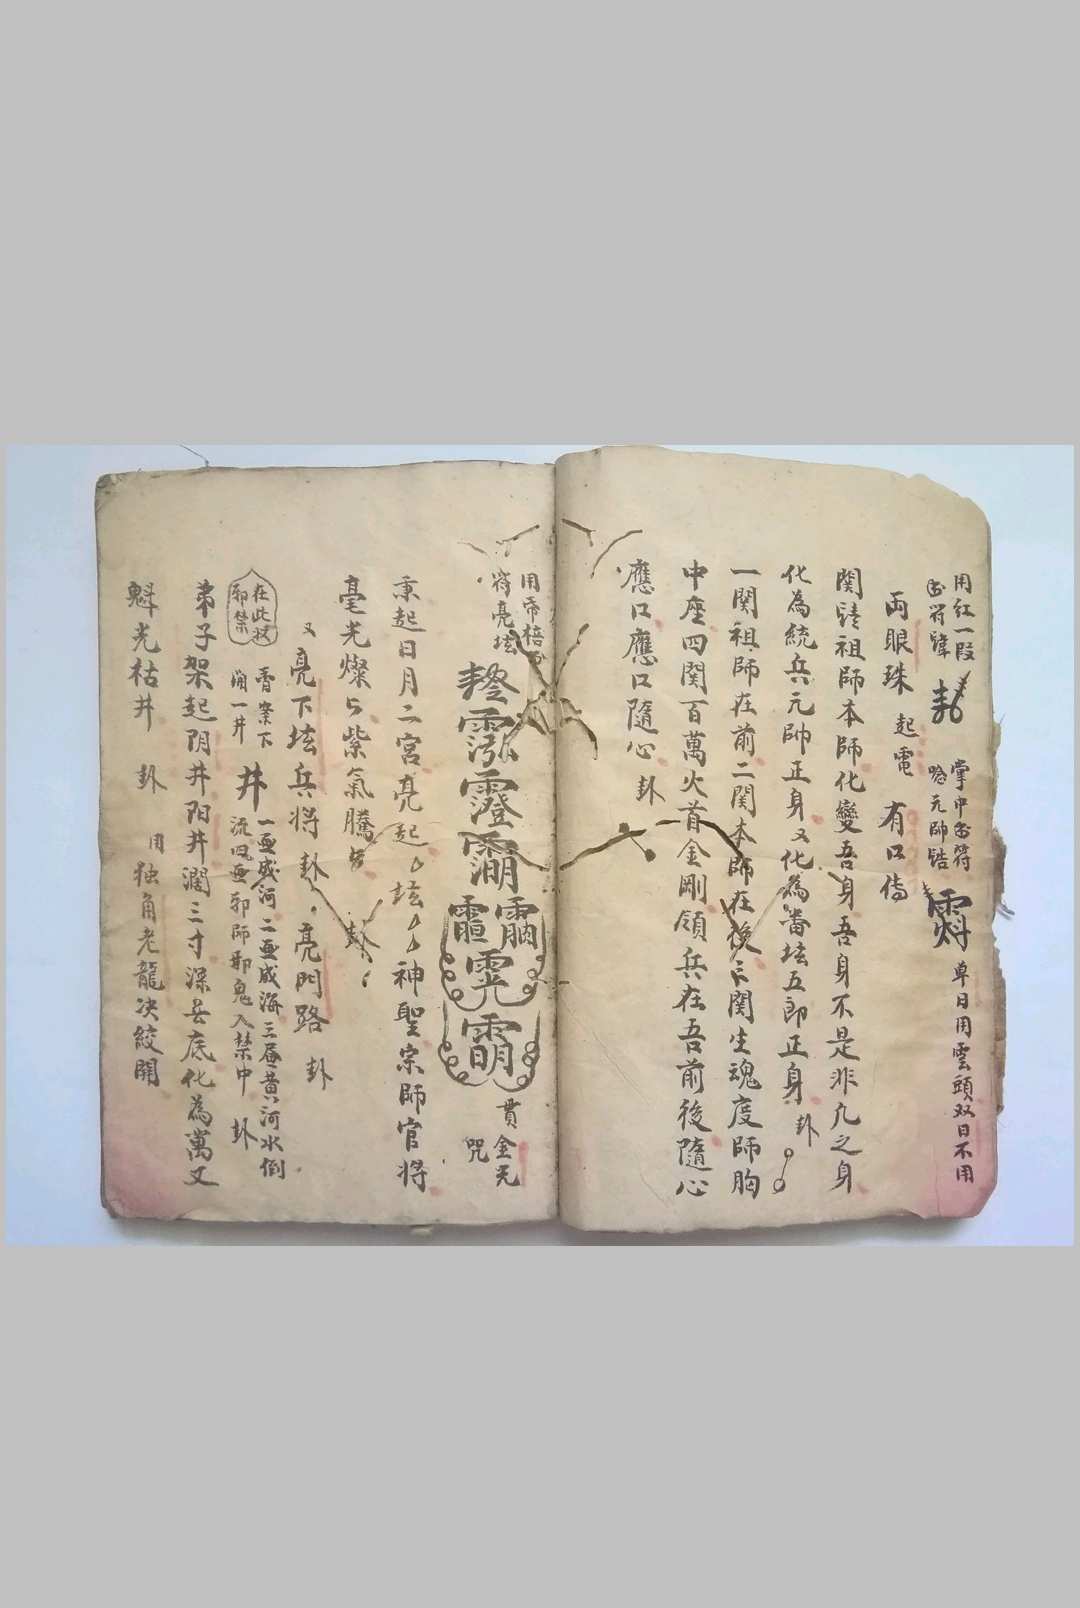 用紅一段
書符諱
掌中書符
唸元帥誥
單日用雲頭双日不用
両眼珠 起電 有口傳
関請祖師本師化變吾身吾身不是非凡之身
化為統兵元帥正身又化為番坛五郎正身卦
一関祖師在前二関本師在後三関生魂度師胸
中座四関百萬火首金剛領兵在吾前後隨心
應口應口隨心 卦
用帝
符亮坛
貫金光
咒
秉起日月二宮亮起坛神聖宗師官將
毫光燦紫氣騰
又亮下坛兵將 卦亮門路 卦
香案下
一画成河二画成海三画黄河水倒
流四画邪師邪鬼入禁中 卦
井
在此
邪禁
弟子架起阴井阳井濶三寸深無底化為萬丈
魁光枯井 卦 用独角老龍决絞開